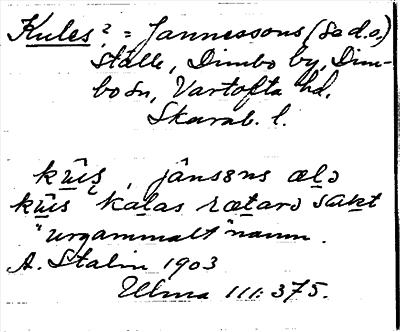 Kules? = Jannessons (Sa d.o.)
ställe, Dimbo by, Dim-
bo sn, Vartofta hd.
Skarab. l.
kūɩs, jânsɜns æḷə
kūɩs kaḷas ræṯarə sakt
"urgammalt" namn.
A. Stalin 1903
Ulma 111:375.